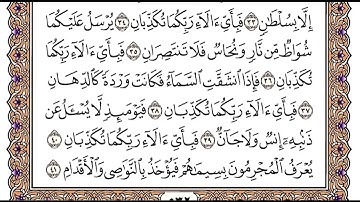 إِلَّا بِسُلْطَٰنٍ ٣٣ فَبِأَيِّ ءَالَآءِ رَبِّكُمَا تُكَذِّبَانِ ٣٤ يُرْسَلُ عَلَيْكُمَا
شُوَاظٌ مِّن نَّارٍ وَنُحَاسٌ فَلَا تَنتَصِرَانِ ٣٥ فَبِأَيِّ ءَالَآءِ رَبِّكُمَا
تُكَذِّبَانِ ٣٦ فَإِذَا ٱنشَقَّتِ ٱلسَّمَآءُ فَكَانَتْ وَرْدَةً كَٱلدِّهَانِ
٣٧ فَبِأَيِّ ءَالَآءِ رَبِّكُمَا تُكَذِّبَانِ ٣٨ فَيَوْمَئِذٍ لَّا يُسْـَٔلُ عَن
ذَنۢبِهِۦٓ إِنسٌ وَلَا جَآنٌّ ٣٩ فَبِأَيِّ ءَالَآءِ رَبِّكُمَا تُكَذِّبَانِ ٤٠
يُعْرَفُ ٱلْمُجْرِمُونَ بِسِيمَٰهُمْ فَيُؤْخَذُ بِٱلنَّوَٰصِى وَٱلْأَقْدَامِ ٤١